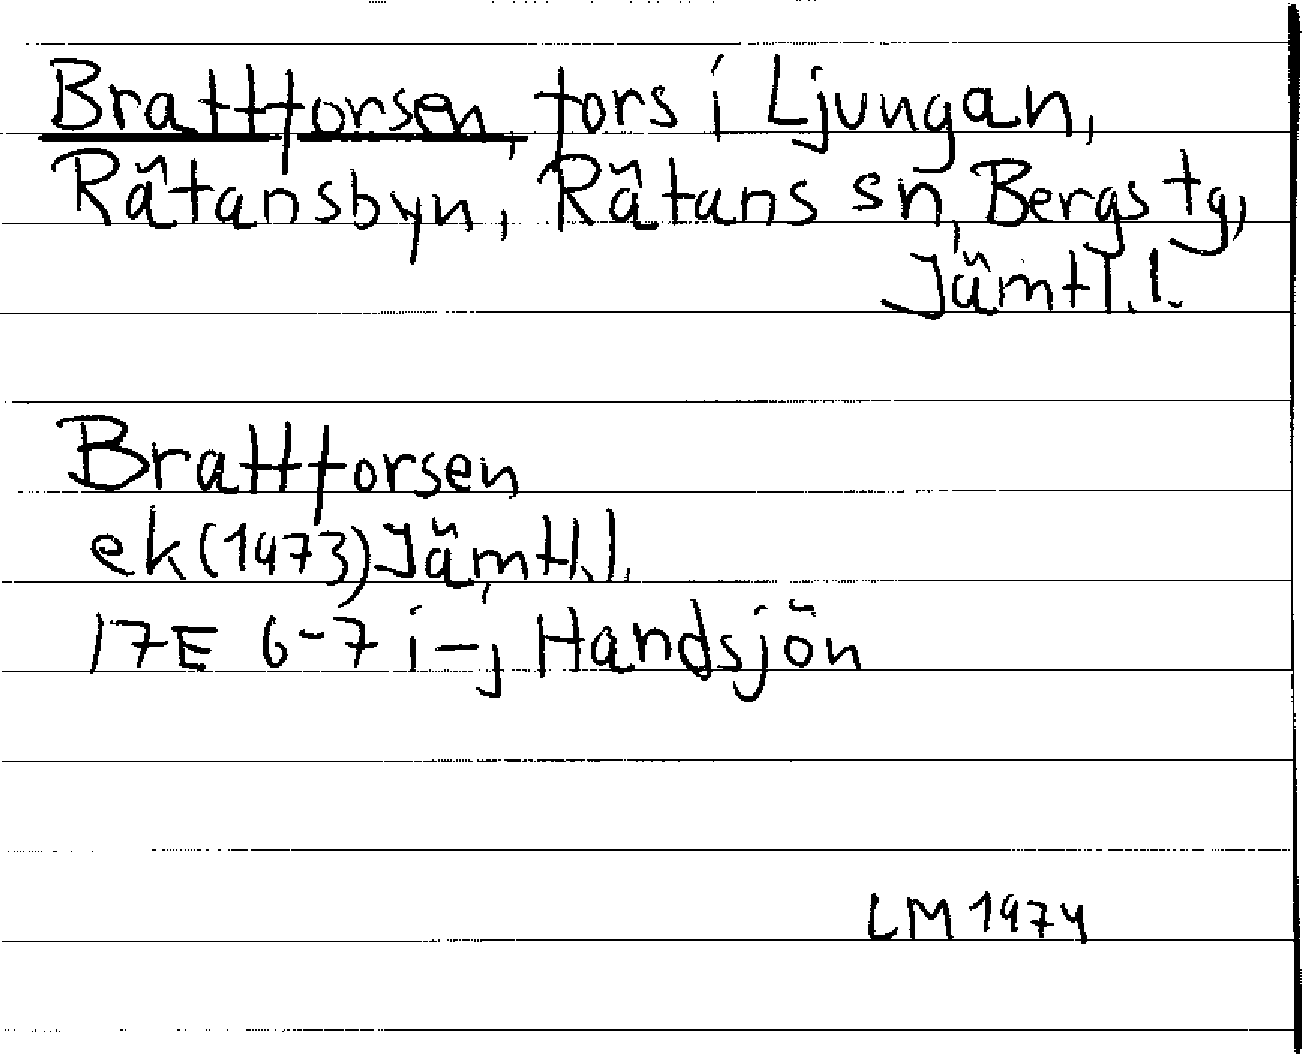 Brattforsen, fors i Ljungan,
Rätansbyn, Rätans sn, Bergs tg,
Jämtl.l.
Brattforsen
ek(1973)Jämtl.l.
17E 6-7 i-j Handsjön
LM 1974